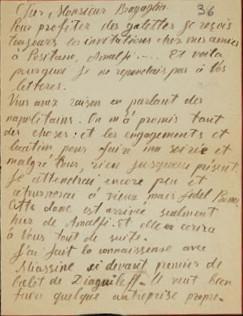 Cher Monsieur 36
Pour profiter des galettes je reçois
toujours les invitations chez mes amies
à Positano, Amalfi..... Et voilà
pourquoi je ne repondais pas à vos
lettres.
Vous avez raison en parlant des
napolitains. On m'a promis tant
des choses: et les engagements et
location pour qu'un ma soirée et
malgré tous, rien jusqu'au présent.
Je attendrai encore peu et
retournerai à vieux mais fidel
Cette dame est arrivée sealment
hier de Amalfi. Et elle ecrira
à Vous tout de suite.
J'ai fait la connaissance avec
Miassine ci devant premier de
balet de Diaguileff. Il veut bien
faire quelque entreprise propre.